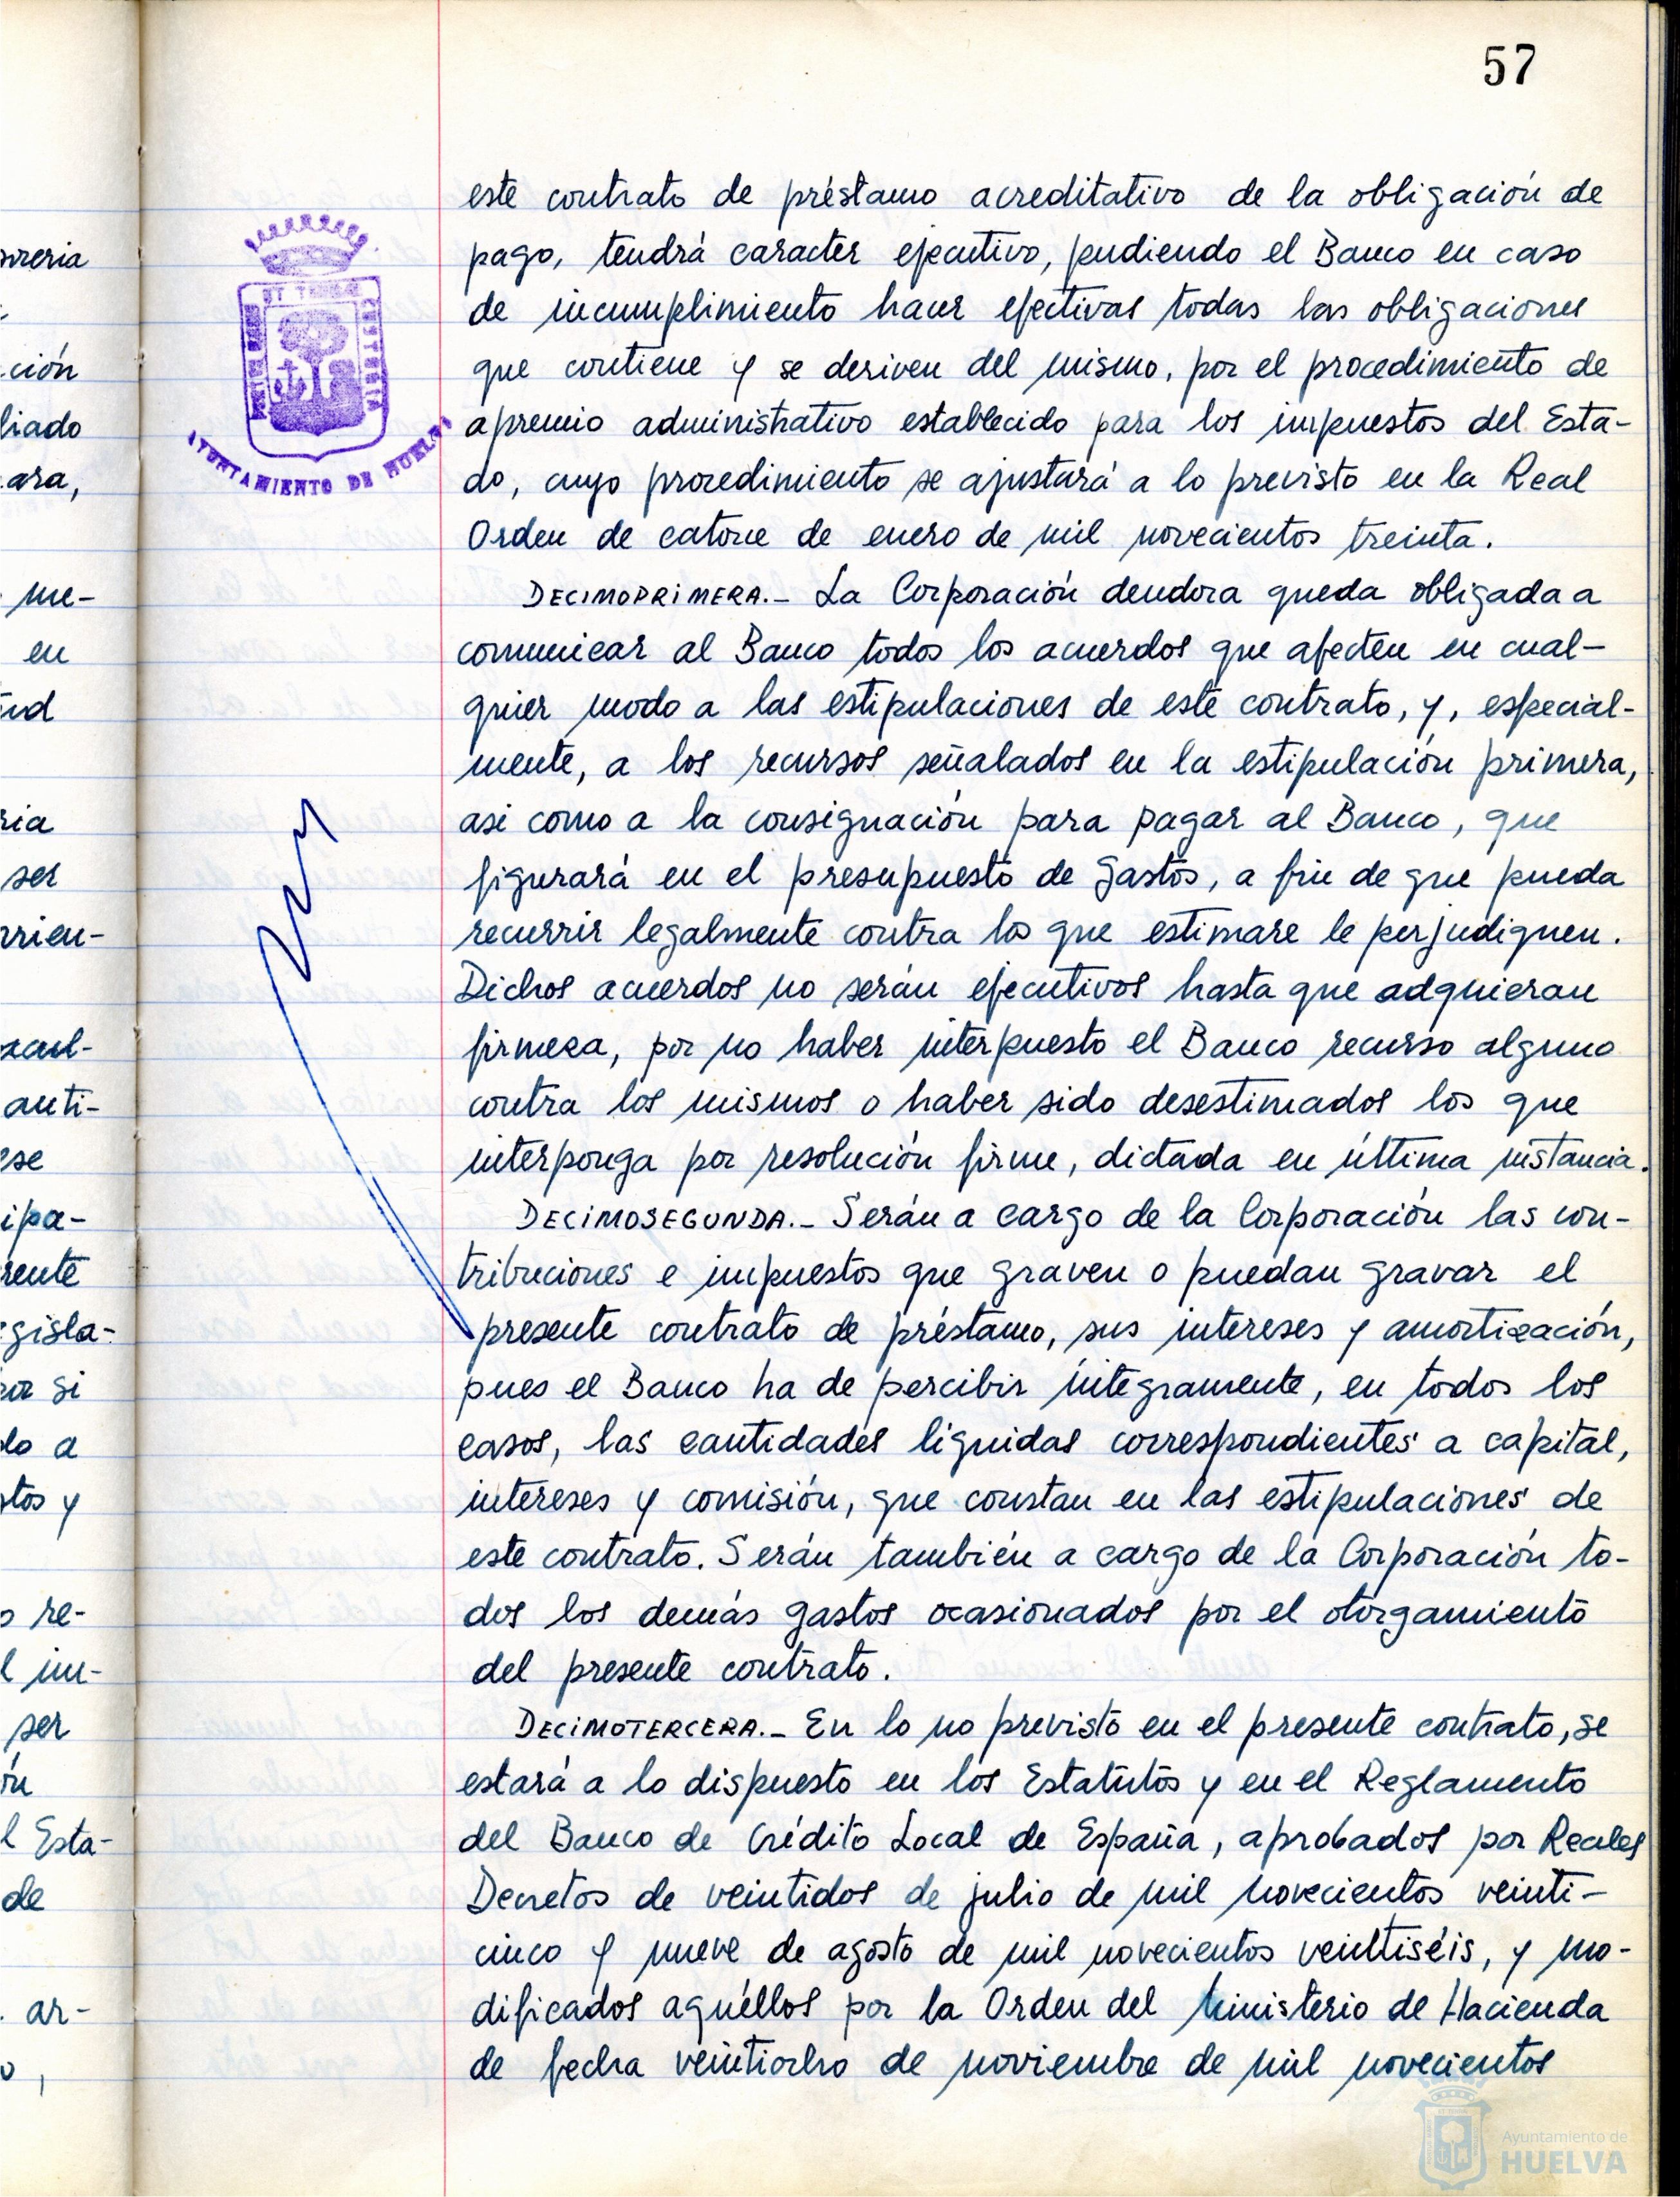 57
este contrato de préstamo acreditativo de la obligación de
pago, tendrá caracter ejecutivo, pudiendo el Banco en caso
de incumplimiento hacer efectivas todas las obligaciones
que contiene y se deriven del mismo, por el procedimiento de
apremio administrativo establecido para los impuestos del Esta-
do, cuyo procedimiento se ajustará a lo previsto en la Real
Orden de catorce de enero de mil novecientos treinta.
DECIMOPRIMERA.- La Corporación deudora queda obligada a
comunicar al Banco todos los acuerdos que afecten en cual-
quier modo a las estipulaciones de este contrato, y, especial-
mente, a los recursos señalados en la estipulación primera,
asi como a la consignación para pagar al Banco, que
figurará en el presupuesto de gastos, a fin de que pueda
recurrir legalmente contra los que estimare le perjudiquen.
Dichos acuerdos no serán ejecutivos hasta que adquieran
firmeza, por no haber interpuesto el Banco recurso alguno
contra los mismos o haber sido desestimados los que
interponga por resolución firme, dictada en última instancia.
DECIMOSEGUNDA.- Serán a cargo de la Corporación las con-
tribuciones e impuestos que graven o puedan gravar el
presente contrato de préstamo, sus intereses y amortización,
pues el Banco ha de percibir íntegramente, en todos los
casos, las cantidades líquidas correspondientes a capital,
intereses y comisión, que constan en las estipulaciones de
este contrato. Serán también a cargo de la Corporación to-
dos los demás gastos ocasionados por el otorgamiento
del presente contrato.
DECIMOTERCERA.- En lo no previsto en el presente contrato, se
estará a lo dispuesto en los Estatutos y en el Reglamento
del Banco de Crédito Local de España, aprobados por Reales
Decretos de veintidos de julio de mil novecientos veinti-
cinco y nueve de agosto de mil novecientos veintiséis, y mo-
dificados aquéllos por la Orden del Ministerio de Hacienda
de fecha veintiocho de noviembre de mil novecientos
AYUNTAMIENTO DE HUELVA
Ayuntamiento de
HUELVA
ción
me-
en
ser
anti-
se
gisla-
si
lo a
y
re-
ser
l Esta-
de
ar-